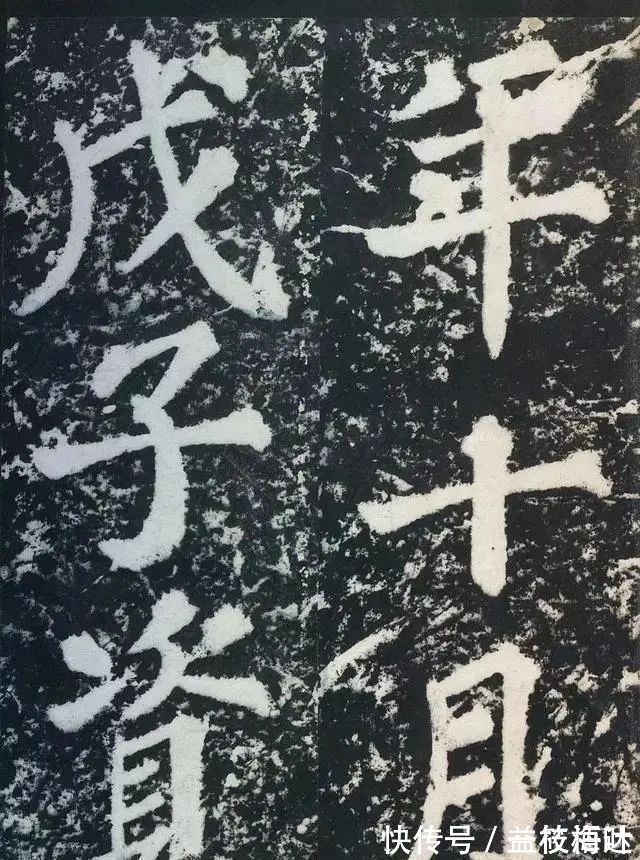 年十月
戊子資
快传号 / 益枝